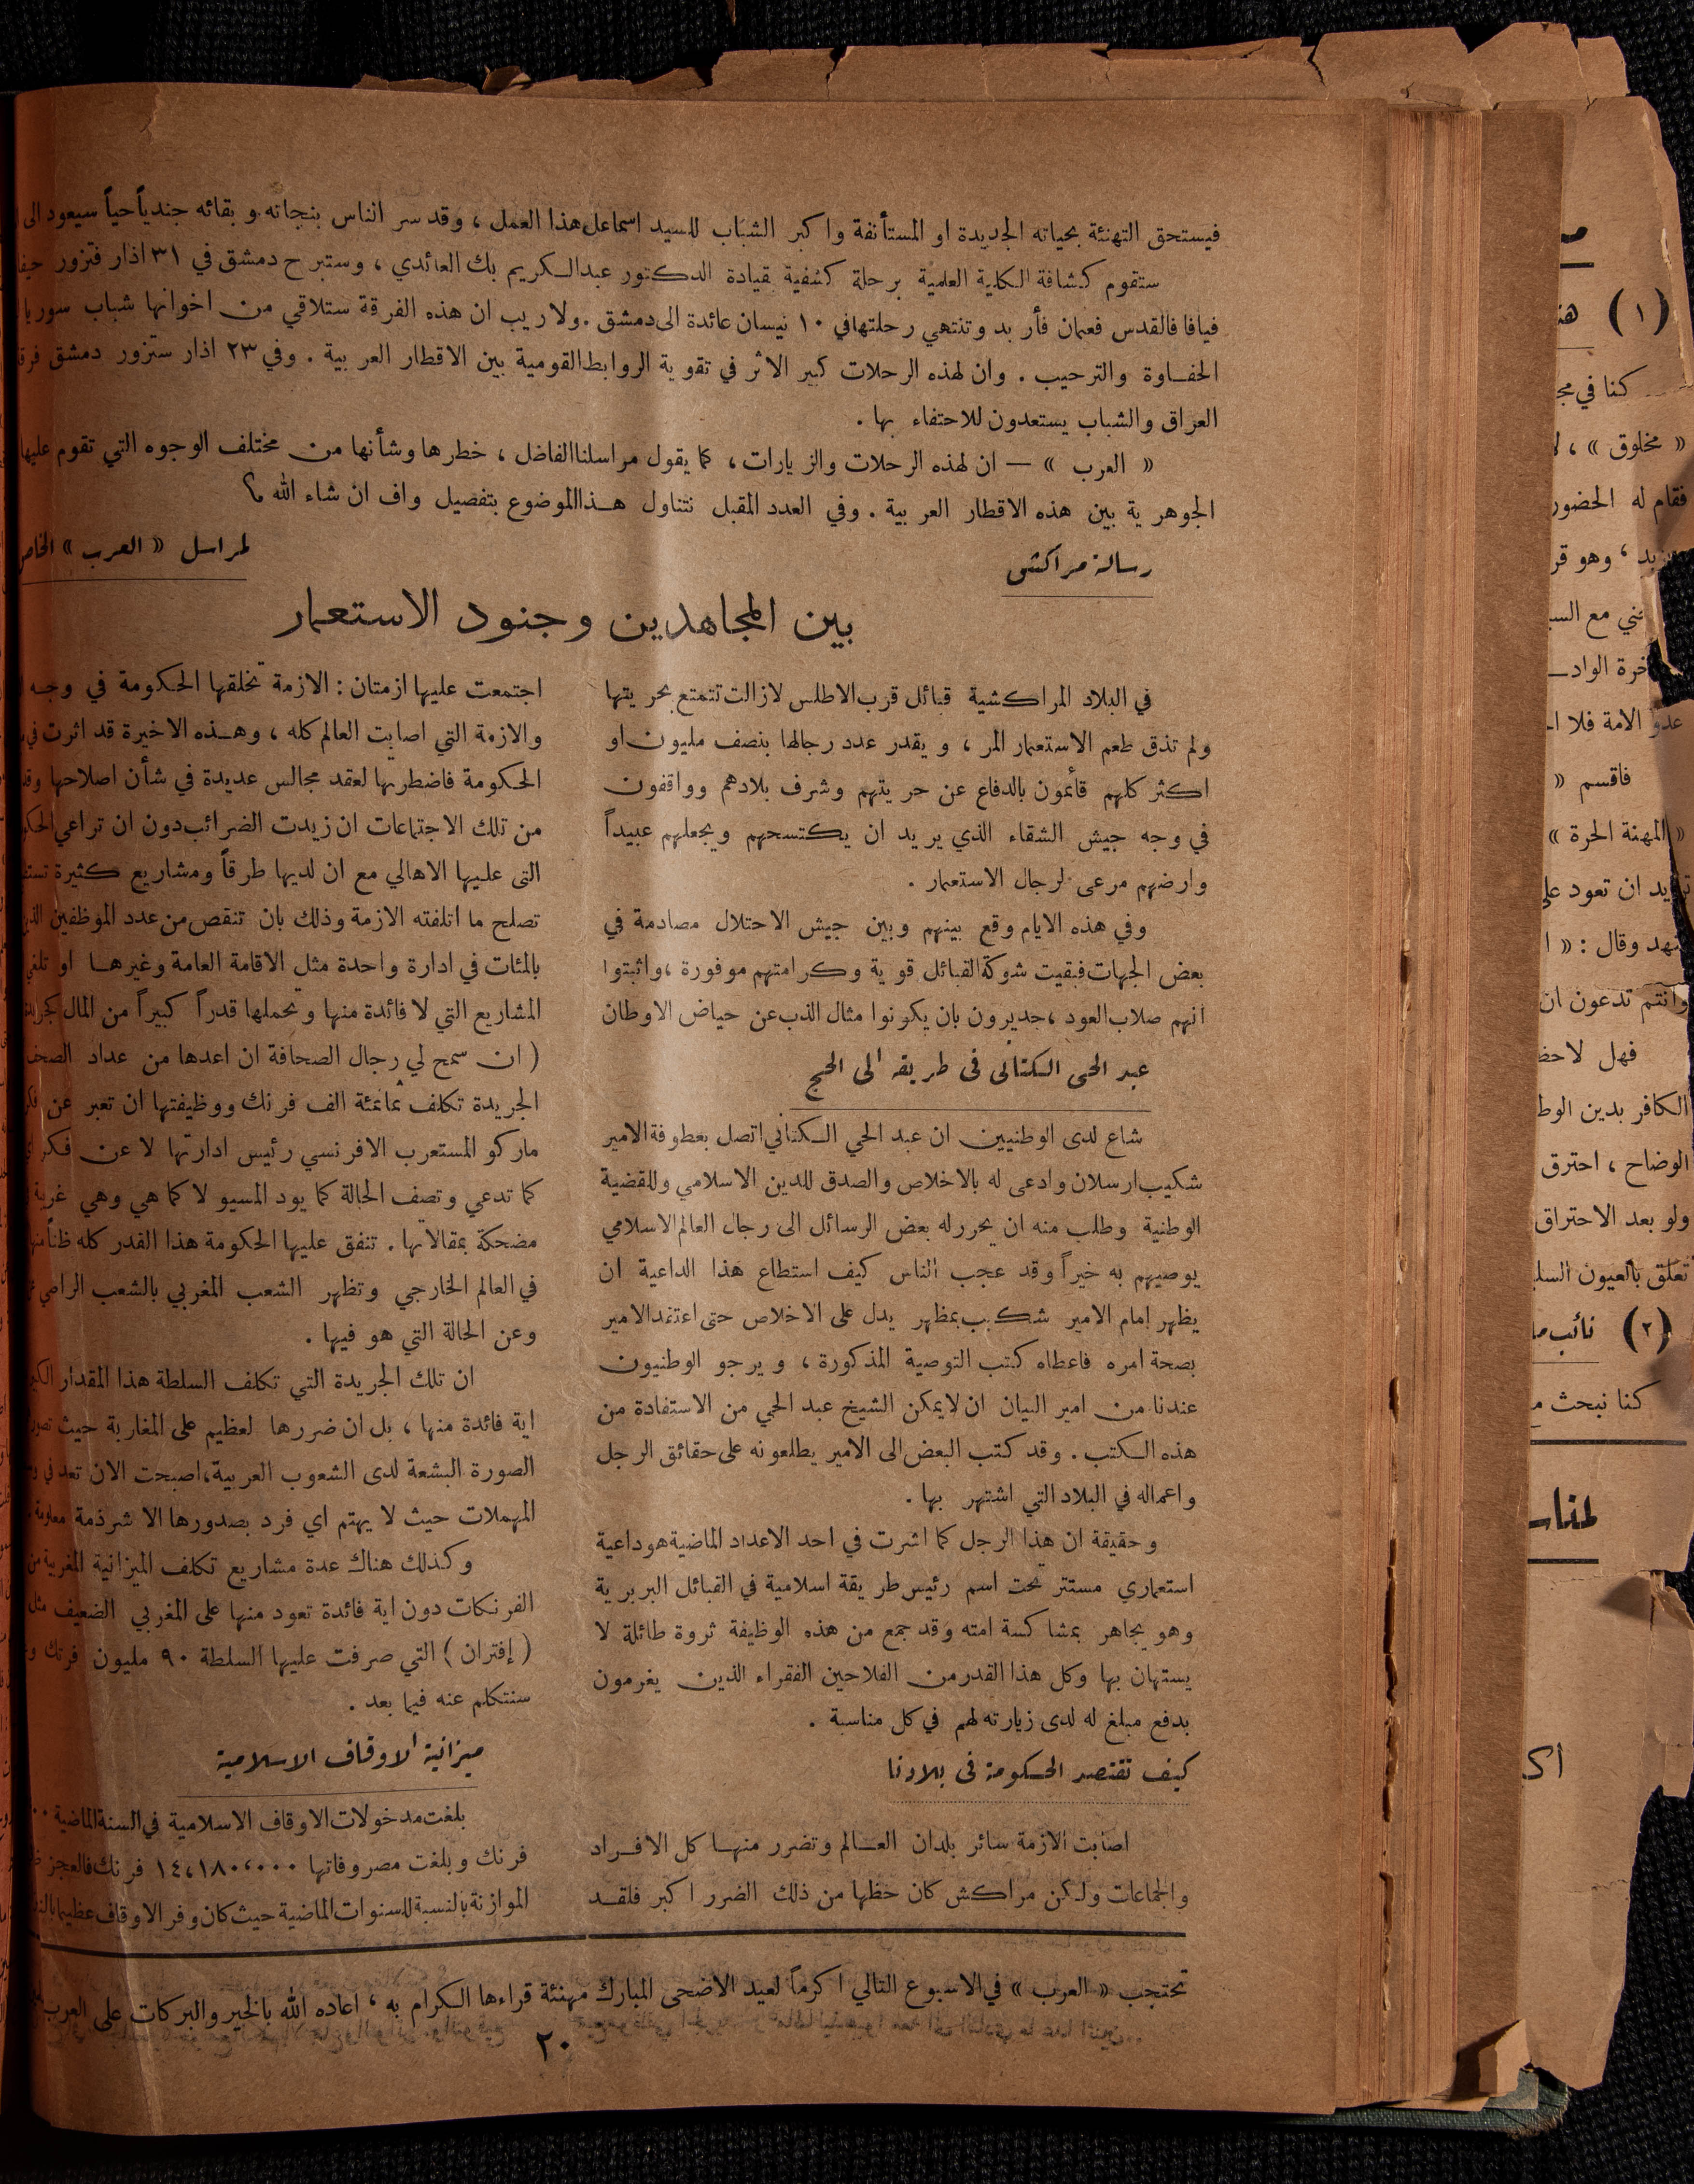 فيستحق التهنئة بحياته الجديدة او المستأنفة واكبر الشباب للسيد اسماعل هذا العمل ، وقد سر الناس بنجاته و بقائه جندياً حياً سيعود الى
ستقوم كشافة الكلية العلمية برحلة كشفية بقيادة الدكتور عبدالكريم بك العائدي ، وستبرح دمشق في ٣١ اذار فتزور حيفا
فيافا فالقدس فعمان فأربد وتنتهي رحلتها في ١٠ نيسان عائدة الى دمشق . ولا ريب ان هذه الفرقة ستلاقي من اخوانها شباب سوريا
الحفاوة والترحيب . وان لهذه الرحلات كبير الاثر في تقوية الروابط القومية بين الاقطار العربية . وفي ٢٣ اذار ستزور دمشق فرقة
العراق والشباب يستعدون للاحتفاء بها .
« العرب » — ان لهذه الرحلات والزيارات ، كما يقول مراسلنا الفاضل ، خطرها وشأنها من مختلف الوجوه التي تقوم عليها
الجوهرية بين هذه الاقطار العربية . وفي العدد المقبل نتناول هذا الموضوع بتفصيل واف ان شاء الله ؟
رسالة مراكش
لمراسل « العرب » الخاص
بين المجاهدين وجنود الاستعمار
في البلاد المراكشية قبائل قرب الاطلس لازالت تتمتع بحريتها
ولم تذق طعم الاستعمار المر ، ويقدر عدد رجالها بنصف مليون او
اكثر كلهم قائمون بالدفاع عن حريتهم وشرف بلادهم وواقفون
في وجه جيش الشقاء الذي يريد ان يكتسحهم ويجعلهم عبيداً
وارضهم مرعى لرجال الاستعمار .
وفي هذه الايام وقع بينهم وبين جيش الاحتلال مصادمة في
بعض الجهات فبقيت شوكة القبائل قوية وكرامتهم موفورة ، واثبتوا
انهم صلاب العود ، جديرون بان يكونوا مثال الذب عن حياض الاوطان
عبد الحى الكتانى فى طريقه الى الحج
شاع لدى الوطنيين ان عبد الحي الكتاني اتصل بعطوفة الامير
شكيب ارسلان وادعى له بالاخلاص والصدق للدين الاسلامي وللقضية
الوطنية وطلب منه ان يحرر له بعض الرسائل الى رجال العالم الاسلامي
يوصيهم به خيراً وقد عجب الناس كيف استطاع هذا الداعية ان
يظهر امام الامير شكيب بمظهر يدل على الاخلاص حتى اعتقد الامير
بصحة امره فاعطاه كتب التوصية المذكورة ، و يرجو الوطنيون
عندنا من امير البيان ان لا يمكن الشيخ عبد الحي من الاستفادة من
هذه الكتب . وقد كتب البعض الى الامير يطلعونه على حقائق الرجل
واعماله في البلاد التي اشتهر بها .
وحقيقة ان هذا الرجل كما اشرت في احد الاعداد الماضية هو داعية
استعماري مستتر تحت اسم رئيس طريقة اسلامية في القبائل البربرية
وهو يجاهر بمشاكسة امته وقد جمع من هذه الوظيفة ثروة طائلة لا
يستهان بها وكل هذا القدر من الفلاحين الفقراء الذين يغرمون
بدفع مبلغ له لدى زيارته لهم في كل مناسبة .
كيف تقتصد الحكومة فى بلادنا
اصابت الازمة سائر بلدان العالم وتضرر منها كل الافراد
والجماعات ولكن مراكش كان حظها من ذلك الضرر اكبر فلقد
اجتمعت عليها ازمتان : الازمة تخلقها الحكومة في وجه
والازمة التي اصابت العالم كله ، وهذه الاخيرة قد اثرت في
الحكومة فاضطرتها لعقد مجالس عديدة في شأن اصلاحها وقد
من تلك الاجتماعات ان زيدت الضرائب دون ان تراعي
التى عليها الاهالي مع ان لديها طرقاً ومشاريع كثيرة
تصلح ما اتلفته الازمة وذلك بان تنقص من عدد الموظفين
بالمئات في ادارة واحدة مثل الاقامة العامة وغيرها او تلغي
المشاريع التي لا فائدة منها وتحملها قدراً كبيراً من المال
( ان سمح لي رجال الصحافة ان اعدها من عداد الصحف
الجريدة تكلف ثمانمئة الف فرنك ووظيفتها ان تعبر عن
ماركو المستعرب الافرنسي رئيس ادارتها لا عن فكر
كما تدعي وتصف الحالة كما يود المسيو لا كما هي وهي
مضحكة بمقالاتها . تنفق عليها الحكومة هذا القدر كله ظناً منها
في العالم الخارجي وتظهر الشعب المغربي بالشعب الراضي
وعن الحالة التي هو فيها .
ان تلك الجريدة التي تكلف السلطة هذا المقدار
اية فائدة منها ، بل ان ضررها لعظيم على المغاربة حيث
الصورة البشعة لدى الشعوب العربية ، اصبحت الان تعد في
المهملات حيث لا يهتم اي فرد بصدورها الا شرذمة معلومة
وكذلك هناك عدة مشاريع تكلف الميزانية المغربية من
الفرنكات دون اية فائدة تعود منها على المغربي الضعيف مثل
( إفتران ) التي صرفت عليها السلطة ٩٠ مليون فرنك
سنتكلم عنه فيما بعد .
ميزانية الاوقاف الاسلامية
بلغت مدخولات الاوقاف الاسلامية في السنة الماضية
فرنك وبلغت مصروفاتها ١٤،١٨٠،٠٠٠ فرنك فالعجز
الموازنة بالنسبة للسنوات الماضية حيث كان وفر الاوقاف عظيما
تحتجب « العرب » في الاسبوع التالي اكرماً لعيد الاضحى المبارك مهنئة قراءها الكرام به ، اعاده الله بالخير والبركات على العرب
٢٠
( ١ )
كنا في
« مخلوق » ،
فقام له الحضور
وهو
مع
الامة فلا
فاقسم «
« المهنة الحرة »
ان تعود
وقال : «
وانتم تدعون ان
فهل
الكافر بدين
الوضاح ، احترق
ولو بعد الاحتراق
تعلق بالعيون
( ٢ ) نائب
كنا نبحث